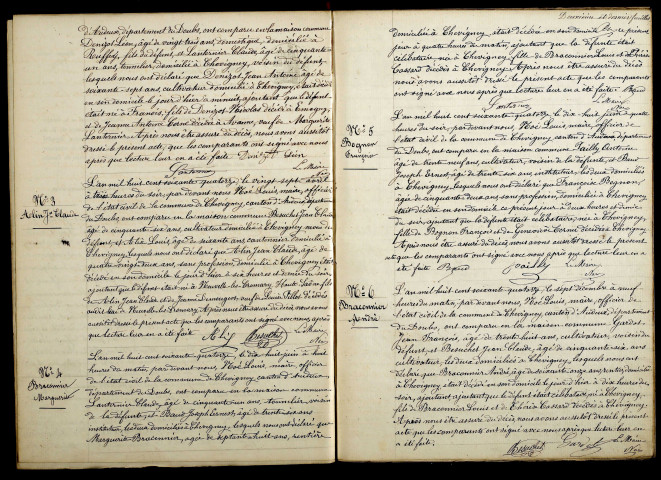 d'Audeux, département du Doubs, ont comparu en la maison commune
Denizot Léon, âgé de vingt-trois ans, domestique, domicilié à
Ruffey, fils du défunt, et Lanternier Claude, âgé de cinquante-
un ans, tonnelier, domicilié à Chevigney, voisin du défunt,
lesquels nous ont déclaré que Denizot Jean Antoine, âgé de
soixante-sept ans, cultivateur domicilié à Chevigney, était décédé
en son domicile le jour d'hier à minuit, ajoutant que le défunt
était né à Franois, fils de Denizot Nicolas décédé à
et de Jeanne Antoine Cornu décédée à Avanne, veuf de Marguerite
Lanternier. Après nous être assuré du décès, nous avons aussitôt
dressé le présent acte, que les comparants ont signé avec nous
après que lecture leur en a été faite. Denizot Léon
Lanternier Le Maire
N° 3
Alin Jn Claude
L'an mil huit cent soixante quatorze, le vingt sept avril
à heures du soir, par devant nous Noé Louis, maire, officier
de l'état civil de la commune de Chevigney, canton d'Audeux, département
du Doubs, ont comparu en la maison commune Besuchet Jean Claude,
âgé de cinquante-six ans, cultivateur domicilié à Chevigney, voisin du
défunt, et Alix Louis, âgé de soixante ans, cantonnier domicilié à
Chevigney, lesquels nous ont déclaré que Alin Jean Claude, âgé de
quatre-vingt-deux ans, sans profession, domicilié à Chevigney, était
décédé en son domicile le jour d'hier à six heures et demie du soir,
ajoutant que le défunt était né à Haute Saône, fils
de Alin Jean Claude et de Jeanne
aussitôt dressé le présent acte que les comparants ont signé avec nous, après
que lecture leur en a été faite. Alix Besuchet Le Maire
Noé
N° 4
Braconnier
Marguerite
L'an mil huit cent soixante quatorze, le dix huit juin à huit
heures du matin, par devant nous, Noé Louis, maire, officier
de l'état civil de la commune de Chevigney, canton d'Audeux
département du Doubs, ont comparu en la maison commune
Lanternier Claude, âgé de cinquante-un ans, tonnelier, voisin
de la défunte, et Baud Joseph Ernest, âgé de trente-six ans
instituteur, les deux domiciliés à Chevigney, lesquels nous ont déclaré que
Marguerite Braconnier, âgée de septante-huit ans, rentière
Deuxième et dernier feuillet
domiciliée à Chevigney, était décédée en son domicile le présent
jour à quatre heures du matin, ajoutant que la défunte était
célibataire, née à Chevigney, fille de Braconnier Louis et de Thérèse
Cassard décédés à Chevigney. Après nous être assuré du décès
nous avons aussitôt dressé le présent acte que les comparants
ont signé avec nous après que lecture leur en a été faite. Baud
Lanternier Le Maire
Noé
N° 5
Bognon
Françoise
L'an mil huit cent soixante quatorze, le dix huit juin à quatre
heures du soir, par devant nous Noé Louis maire, officier de
l'état civil de la commune de Chevigney, canton d'Audeux, département
du Doubs, ont comparu en la maison commune Pailly Antoine,
âgé de trente neuf ans, cultivateur, voisin de la défunte, et Baud
Joseph Ernest, âgé de trente six ans, instituteur, les deux domiciliés
à Chevigney, lesquels nous ont déclaré que Françoise Bognon,
âgée de cinquante deux ans, sans profession, domiciliée à Chevigney
était décédée en son domicile ce présent jour à deux heures et demie
du soir, ajoutant que la défunte était célibataire, née à Chevigney,
fille de Bognon François et de Geneviève Cornu décédés à Chevigney
Après nous être assuré du décès nous avons aussitôt dressé le présent
acte que les comparants ont signé avec nous après que lecture leur en a
été faite. Baud Pailly Le Maire
Noé
N° 6
Braconnier
André
L'an mil huit cent soixante quatorze, le sept décembre à neuf
heures du matin, par devant nous, Noé Louis, maire, officier de
l'état civil de la commune de Chevigney, canton d'Audeux, département
du Doubs, ont comparu en la maison commune Gardot
Jean François, âgé de trente huit ans, cultivateur, voisin du
défunt, et Besuchet Jean Claude, âgé de cinquante-six ans
cultivateur, les deux domiciliés à Chevigney, lesquels nous ont
déclaré que Braconnier André, âgé de soixante onze ans, rentier, domicilié
à Chevigney, était décédé en son domicile le jour d'hier à dix heures du
soir, ajoutant que le défunt était célibataire, né à Chevigney,
fils de Braconnier Louis et de Thérèse Cassard décédés à Chevigney.
Après nous être assuré du décès, nous avons aussitôt dressé le présent
acte que les comparants ont signé avec nous après que lecture leur en
a été faite. Besuchet Gardot Le Maire
Noé